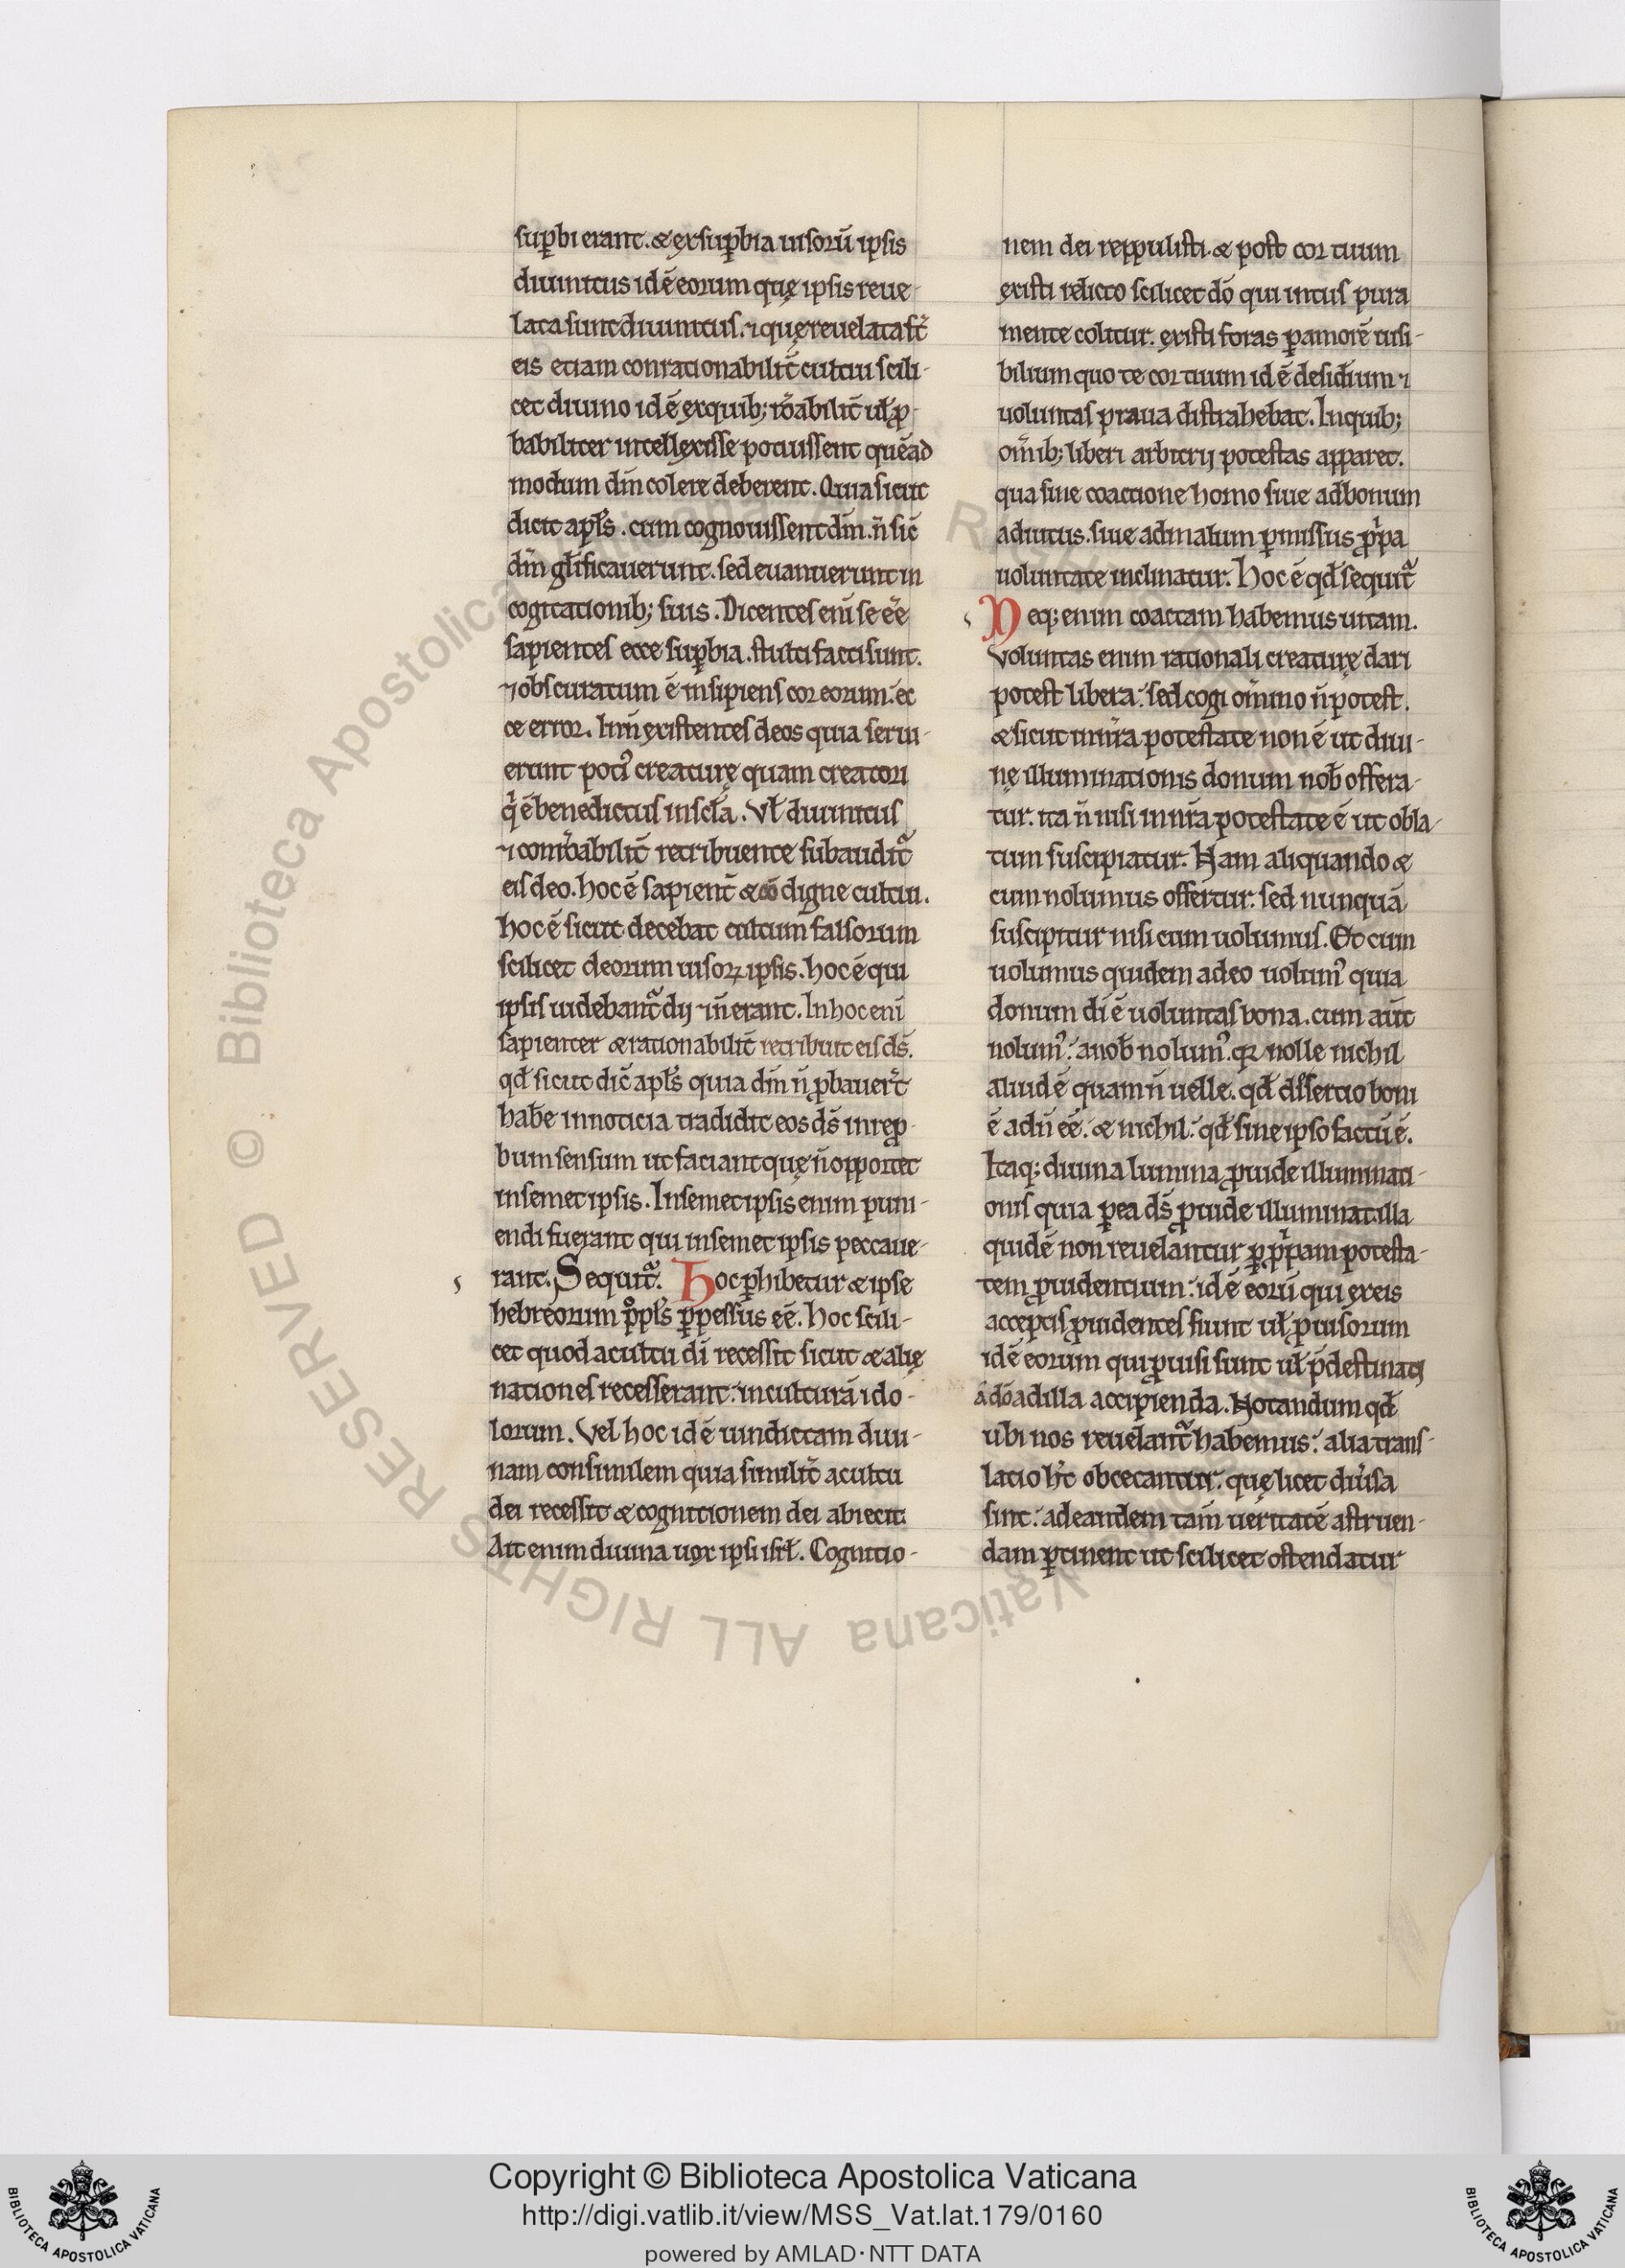 suꝑbi erant. & ex suꝑbia uisorū ipsis
diuinitus id ē eorum quę ipsis reue-
lata sunt diuinitus. ⁊ quę reuelata st̄
eis etiam conrationabilit̄ cultui scili-
cet diuino id ē ex quib; rōabilit̄ uł ꝓ-
babiliter intellexisse potuissent quēad
modum dm̄ colere deberent. Quia sicut
dicit apłs. cum cognouissent dm̄. n̄ sic̄
dm̄ glīficauerunt. sed euanuerunt in
cogitationib; suis. Dicentes eni se eē
sapientes ecce suꝑbia. stulti facti sunt.
⁊ obscuratum ē insipiens cor eorum. ec
ce error. Inn̄ existentes deos quia serui-
erunt poti᾽ creaturę quam creatori
qⁱ ē benedictus in scła. Vł diuinitus
⁊ conrōabilit̄ retribuente subaudit᷑
eis deo. hoc ē sapient̄ & cō digne cultui.
hoc ē sicut decebat cultum falsorum
scilicet deorum uisoꝝ ipsis. hoc ē qui
ipsis uidebant᷑ dij ⁊ n̄ erant. In hoc eni
sapienter & rationabilit̄ retribuit eis ds̄.
qđ sicut dic̄ apłs quia dm̄ n̄ ꝓbauer̄t
habe in noticia tradidit eos ds̄ in reꝓ-
bum sensum ut faciant quę n̄ opportet
in semet ipsis. In semet ipsis enim puni-
endi fuerant qui in semet ipsis peccaue-
rant. Sequit᷑. Hoc ꝑhibetur & ipse
hebreorum pp̄łs ꝑpessus eē. hoc scili-
cet quod a cultu di recessit sicut & alię
nationes recesserant: in culturā ido-
lorum. Vel hoc id ē uindictam diui-
nam consimilem quia similit̄ a cultu
dei recessit & cognitionem dei abiecit.
Ait enim diuina uox ipsi isrł. Cognitio-
nem dei reppulisti. & post cor tuum
existi relicto scilicet dō qui intus pura
mente colitur. existi foras ꝑ amorē uisi-
bilium quo te cor tuum id ē desidium ⁊
uoluntas praua distrahebat. In quib;
om̄ib; liberi arbitrij potestas apparet.
qua siue coactione homo siue ad bonum
adiutus. siue ad malum ꝑmissus ꝓpⁱa
uoluntate inclinatur. Hoc ē qđ sequit᷑
Neq; enim coactam habemus uitam.
Voluntas enim rationali creaturę dari
potest libera: sed cogi om̄ino n̄ potest.
& sicut in nr̄a potestate non ē ut diui-
nę illuminationis donum nob̄ offera-
tur. ita n̄ nisi in nr̄a potestate ē ut obla-
tum suscipiatur. Nam aliquando &
cum nolumus offertur: sed nunquā
suscipitur nisi cum uolumus. Et cum
uolumus quidem a deo uolum᾽ quia
donum di ē uoluntas bona. cum aut̄
nolum᾽: a nob̄ nolum᾽. qꝛ nolle nichil
aliud ē quam n̄ uelle. qđ dissertio boni
ē ad n̄ eē. & nichil: qđ sine ipso factū ē.
Itaq; diuina lumina ꝓuide illuminati-
onis quia ꝑ ea ds̄ ꝓuide illuminat. illa
quidē non reuelantur ꝑ ꝓpⁱam potesta-
tem ꝓuidentium: id ē eorū qui ex eis
acceptis ꝓuidentes fiunt uł ꝓuisorum
id ē eorum qui ꝓuisi sunt uł p̄destinati
a dō ad illa accipienda. Notandum qđ
ubi nos reuelant᷑ habemus: alia trans-
latio h̄t obcecantur. quę licet diu̾sa
sint: ad eandem tam̄ ueritatē astruen-
dam ꝑtinent ut scilicet ostendatur
Copyright © Biblioteca Apostolica Vaticana
http://digi.vatlib.it/view/MSS_Vat.lat.179/0160
powered by AMLAD·NTT DATA
BIBLIOTECA APOSTOLICA VATICANA
BIBLIOTECA APOSTOLICA VATICANA
© Biblioteca Apostolica Vaticana ALL RIGHTS RESERVED